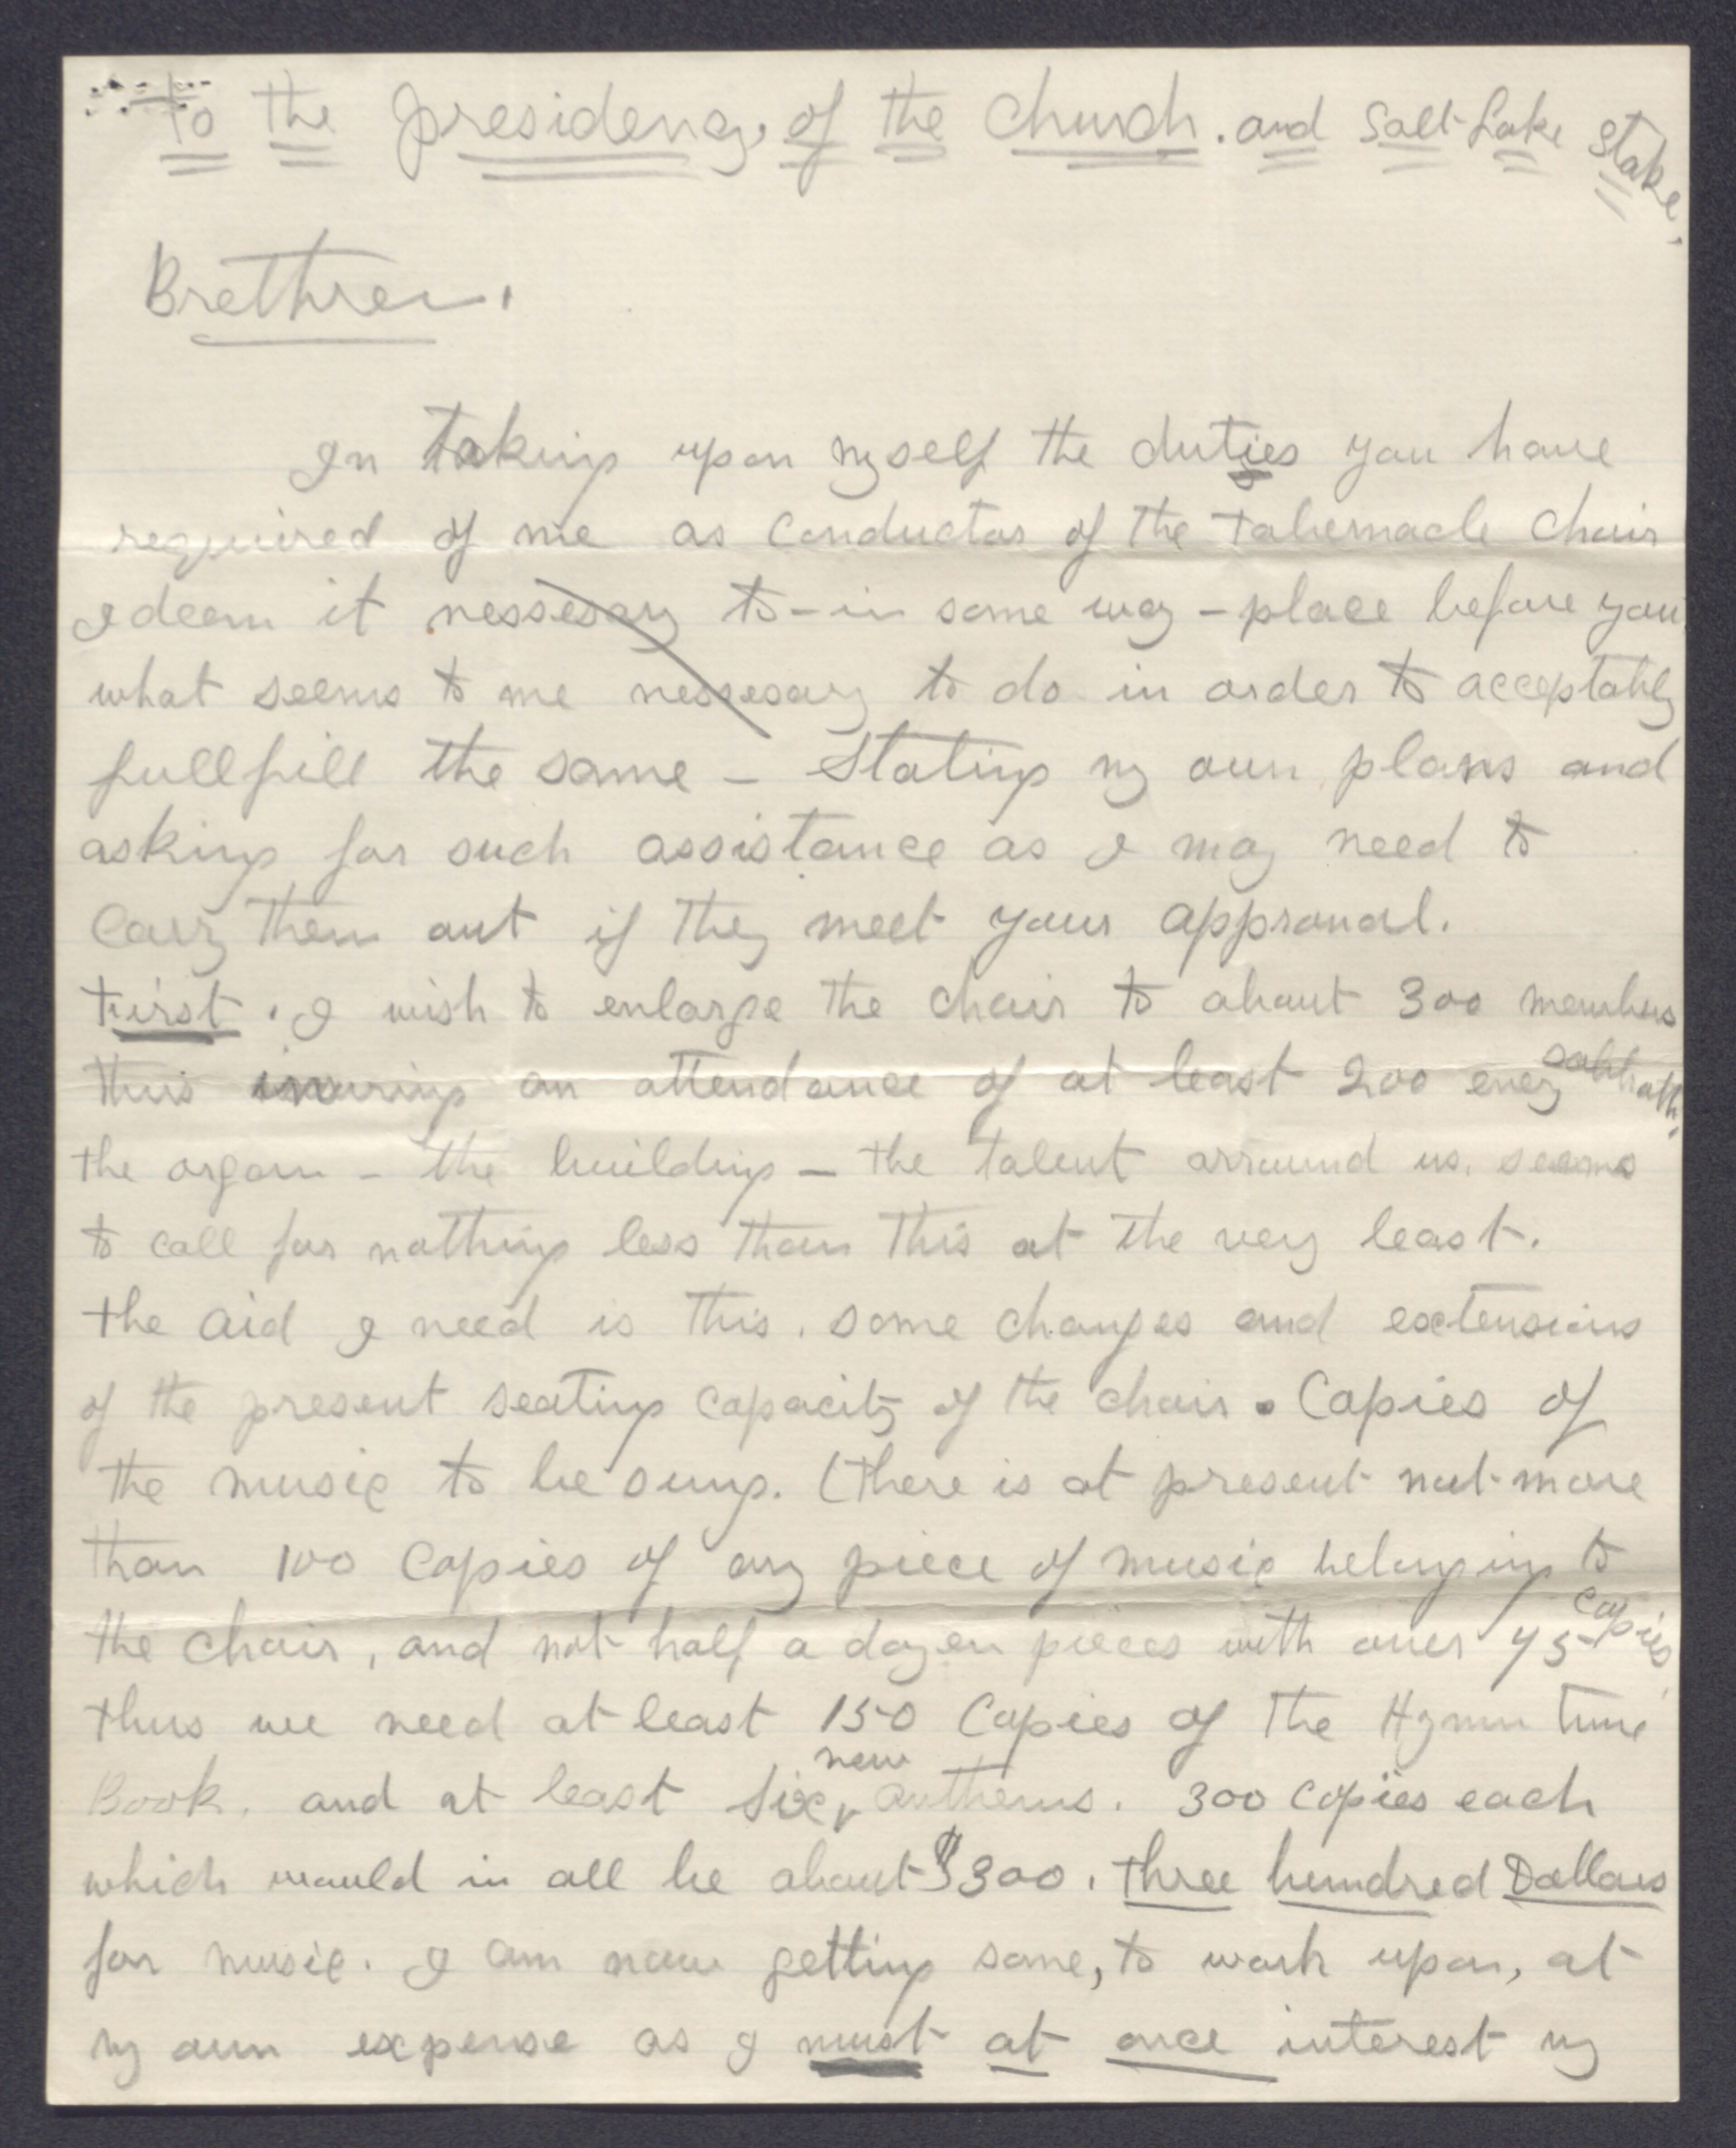 To the Presidency of the Church. and Salt Lake Stake.
Brethren.
In taking upon myself the duties you have
required of me as Conductor of the Tabernacle Choir
I deem it nessesary to - in some way - place before you
what seems to me nessesary to do in order to acceptably
fullfill the same - Stating my own plans and
asking for such assistance as I may need to
Carry them out if they meet your approval.
First. I wish to enlarge the choir to about 300 members
thus insuring an attendance of at least 200 every sabbath.
the organ - the building - the talent arround us. seems
to call for nothing less than this at the very least.
the aid I need is this. some changes and extensions
of the present seating capacity of the choir. Copies of
the music to be sung. (there is at present not more
than 100 Copies of any piece of music belonging to
the choir, and not half a dozen pieces with over 75 copies
thus we need at least 150 Copies of the Hymn tune
Book. and at least six new anthems. 300 copies each
which would in all be about $300. three hundred Dollars
for music. I am now getting some, to work upon, at
my own expense as I must at once interest my